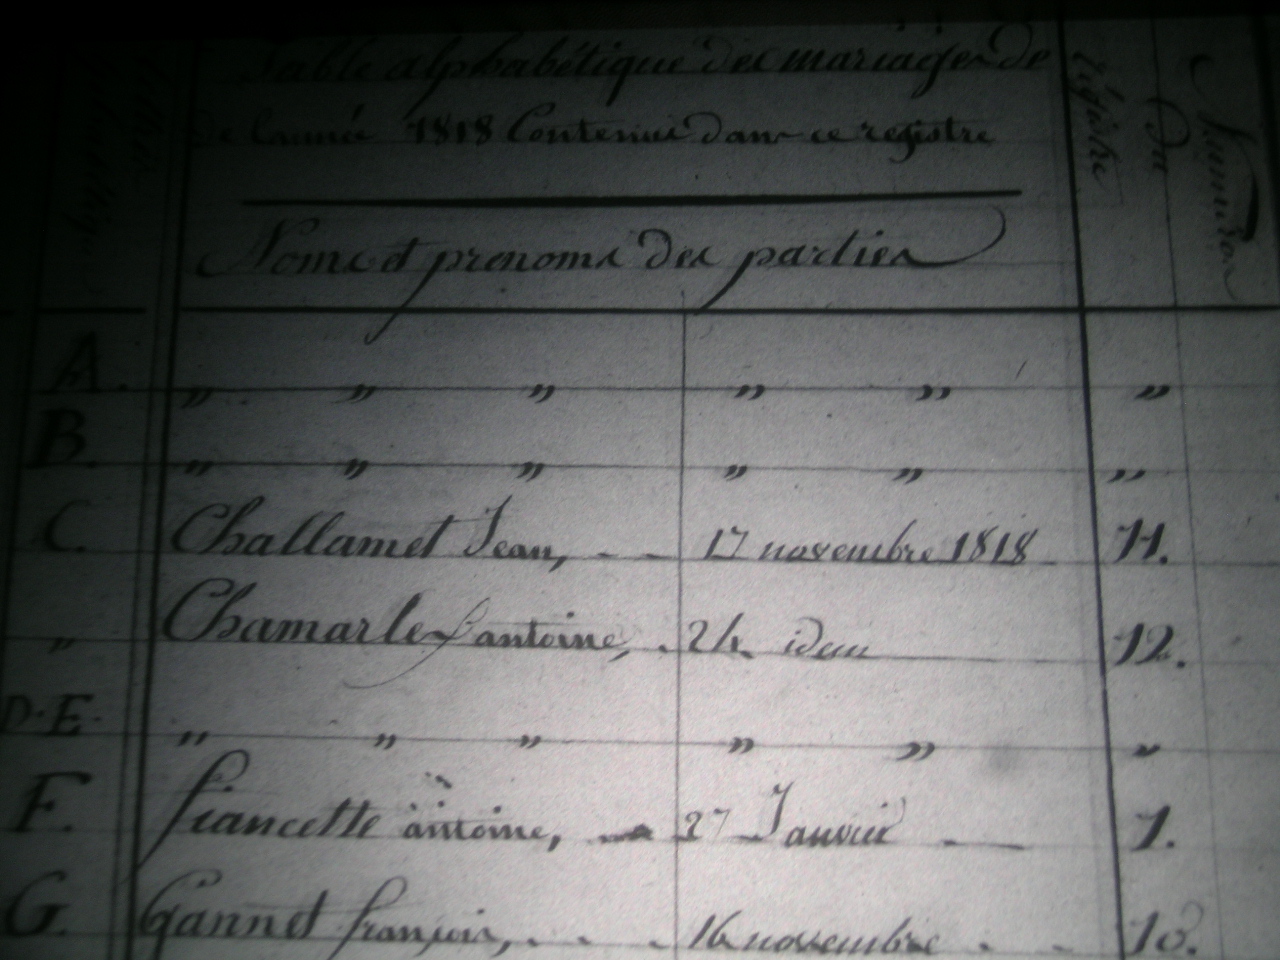 Table alphabétique des mariages de
de l'année 1818 Contenue dans ce registre
Numéros
du
régistre
Noms et prenoms des parties
A. „ „ „ „ „ „
B. „ „ „ „ „ „
C. Challamet Jean, - - 17 novembre 1818 11.
„ Chamarlex antoine, . 24 idem 12.
D. E. „ „ „ „ „ „
F. fiancette antoine, - 27 Janvier - 1.
G. Gannet françois, . . . 16 novembre . . 10.